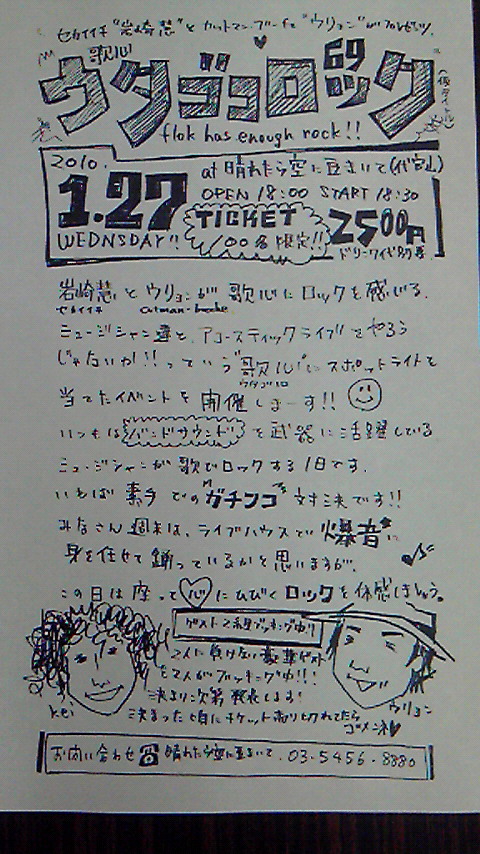 セカイイチ "岩崎慧" と カットマンブーチェ "ウリョン" がプレゼンツ。
歌心
ウタゴコロック
69
(仮タイトル)
flok has enough rock!!
2010.
1.27
WEDNSDAY!!
at 晴れたら空に豆まいて(代官山)
OPEN 18:00 START 18:30
TICKET 2500円
100名限定!! ドリンク代別途
岩崎慧とウリョンが歌心にロックを感じる
セカイイチ Cutman-booche
ミュージシャン達と、アコースティックライブをやろう
じゃないか!!っていう"歌心"にスポットライトを
ウタゴコロ
当てたイベントを開催しまーす!!
いつもはバンドサウンドを武器に活躍している
ミュージシャンが歌でロックする1日です。
いわば素手でのガチンコ対決です!!
みなさん週末は、ライブハウスで爆音に
身を任せて踊っているかと思いますが、
この日は座って心にひびくロックを体感しましょう。
ゲスト2組ブッキング中!!
2人に負けない豪華ゲスト
を2人がブッキング中!!!
決まり次第発表します!
決まった頃にチケット売り切れてたら
ゴメンネ♥
kei
ウリョン
お問い合わせ☎晴れたら空に豆まいて・03-5456-8880